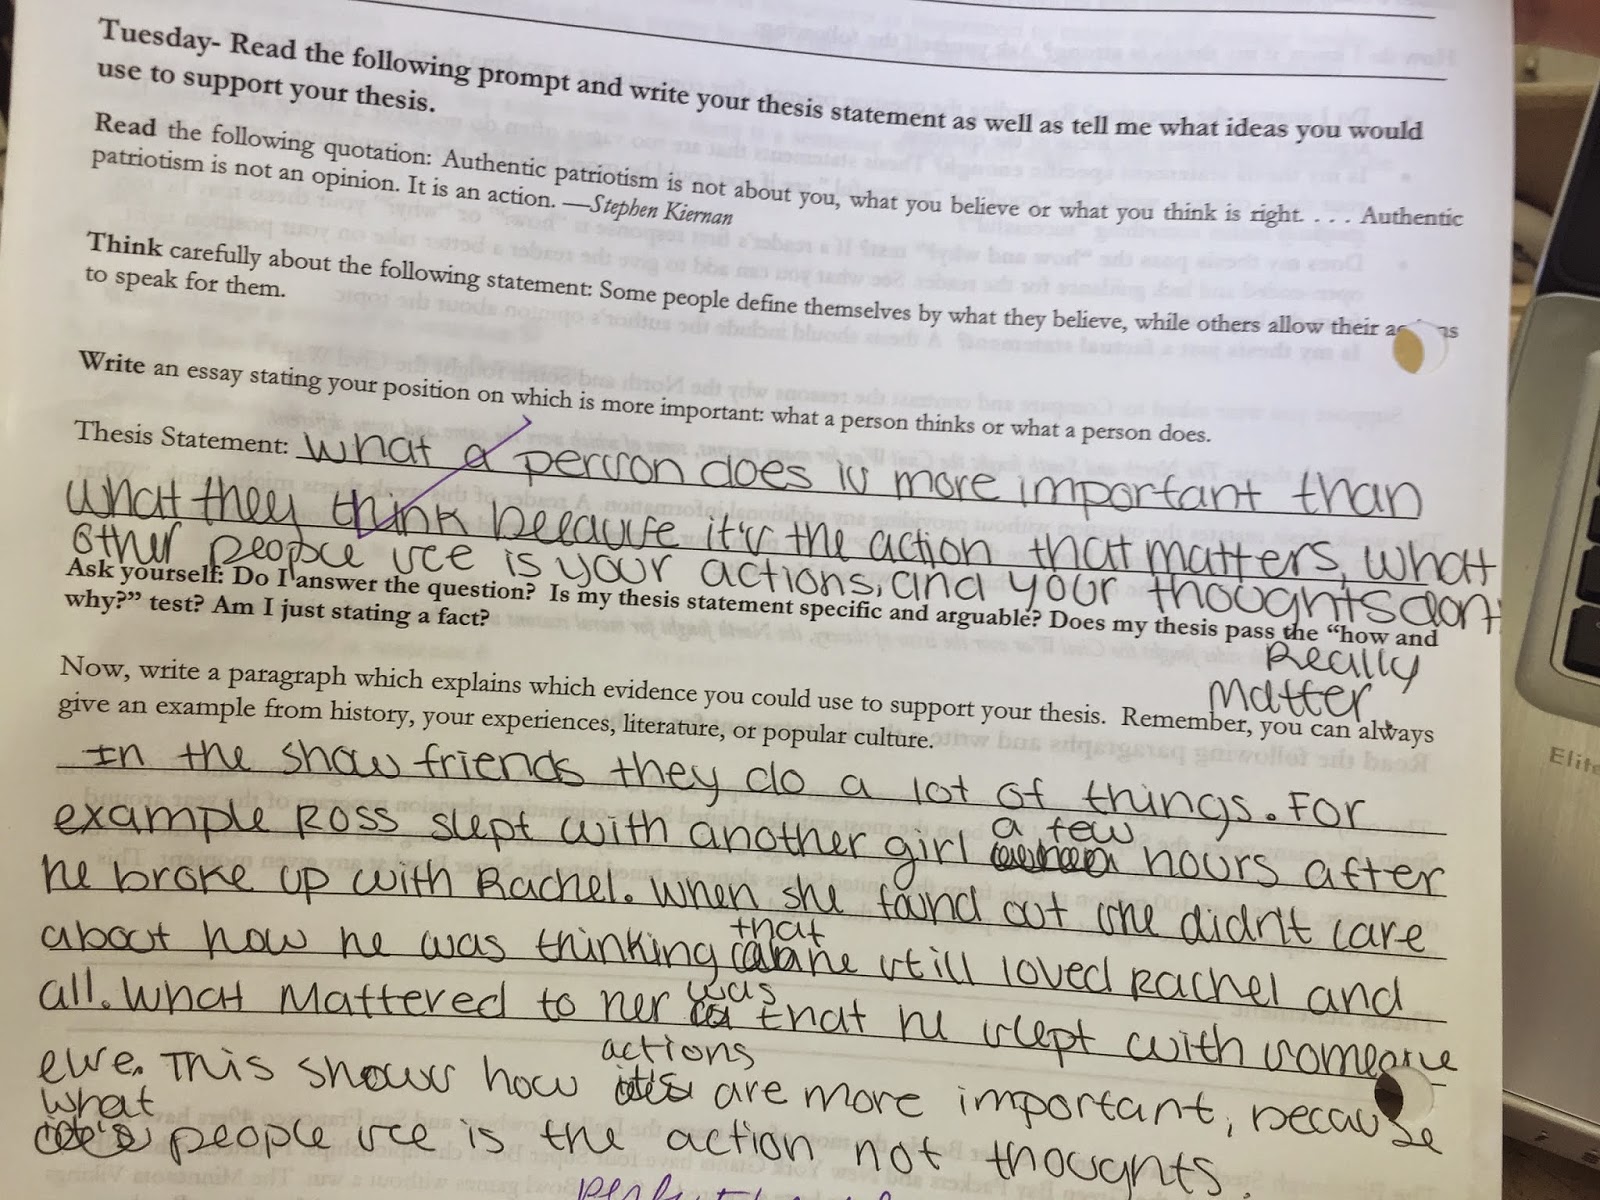 Tuesday- Read the following prompt and write your thesis statement as well as tell me what ideas you would
use to support your thesis.
Read the following quotation: Authentic patriotism is not about you, what you believe or what you think is right. . . . Authentic
patriotism is not an opinion. It is an action. —Stephen Kiernan
Think carefully about the following statement: Some people define themselves by what they believe, while others allow their
to speak for them.
Write an essay stating your position on which is more important: what a person thinks or what a person does.
Thesis Statement: What a person does is more important than
what they think because it's the action that matters, what
other people see is your actions, and your thoughts dont
really
matter
Ask yourself: Do I answer the question? Is my thesis statement specific and arguable? Does my thesis pass the “how and
why?” test? Am I just stating a fact?
Now, write a paragraph which explains which evidence you could use to support your thesis. Remember, you can always
give an example from history, your experiences, literature, or popular culture.
In the show friends they do a lot of things. For
example Ross slept with another girl a few hours after
he broke up with Rachel. When she found out she didn't care
about how he was thinking that he still loved Rachel and
all. What mattered to her was that he slept with someone
else. This shows how actions are more important, because
what people see is the action not thoughts.
Elite